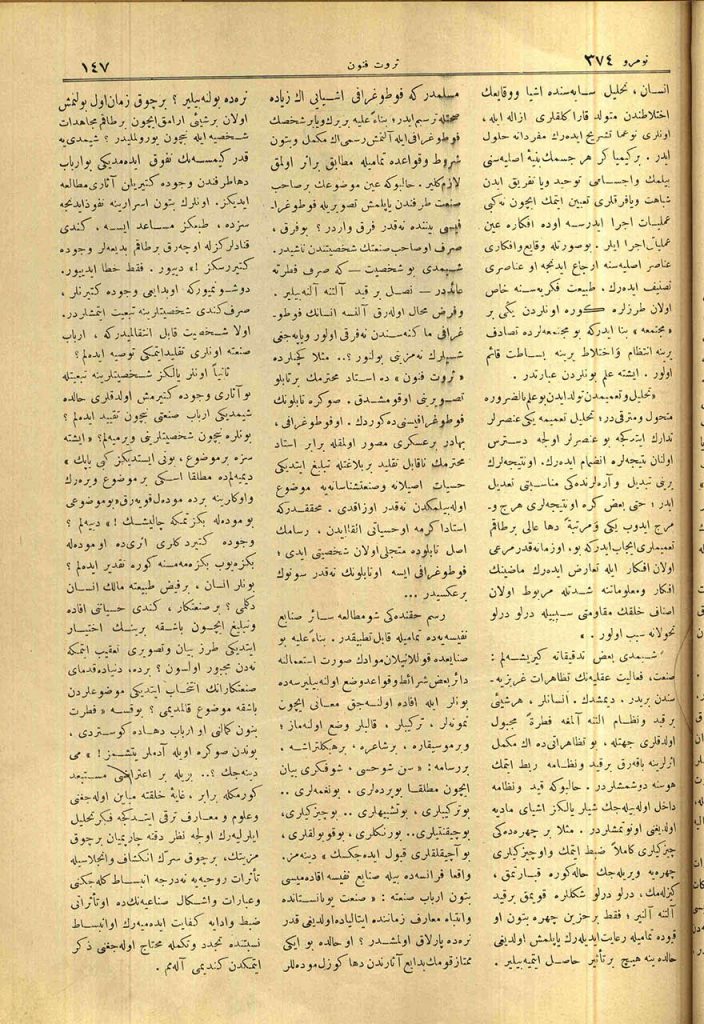 نومرو ٣٧٤
ثروت فنون
١٤٧
انسان ، تحلیل سایه‌سنده اشیا ووقایعك
اختلاطندن متولد قارا كلقلری ازاله ایله ،
اونلری نوعما تشریح ایده‌رك مفرداته حلول
ایدر . بركیمیا كر هر جسمك بنیهٔ اصلیه‌سنی
بیلمك واجسامی توحید ویا تفریق ایدن
شباهت ویا فرقلری تعیین ایتمك ایچون نه‌كبی
عملیات اجرا ایدرسه اوده افكاره عین
عملیاتی اجرا ایلر . بوصورتله وقایع وافكاری
عناصر اصلیه‌سنه ارجاع ایدنجه او عناصری
تصنیف ایده‌رك . طبیعت فكریه‌سنه خاص
اولان طرزلره كوره اونلردن یكی بر
« مجتمعه » بنا ایدركه بو مجتمعه‌لرده تصادف
یرینه انتظام واختلاط یرینه بساطت قائم
اولور . ایشته علم بونلردن عبارتدر .
« تحلیل وتعمیمدن تولد ایدن بو علم بالضروره
متحول ومترقی‌در؛ تحلیل تعمیمه یكی عنصرلر
تدارك ایتدكجه بو عنصرلر اولجه دسترس
اولنان نتیجه‌لره انضمام ایده‌رك. اونتیجه‌لرك
یرینی تبدیل و آره‌لرنده‌كی مناسبتی تعدیل
ایدر ؛ حتی بعض كره اونتیجه‌لری هرج و
مرج ایدوب یكی ومرتبهٔ دها عالی برطاقم
تعمیملری ایجاب ایدركه بو، اوزمانه‌قدر مرعی
اولان افكار ایله تعارض ایده‌رك ماضینك
افكار ومعلوماتنه شدتله مربوط اولان
اصناف خلقك مقاومتی سببیله درلو درلو
تحولاته سبب اولور . »
شیمدی بعض تدقیقاته كیریشه‌لم :
صنعت، فعالیت عقلیه‌نك تظاهرات غریزیه‌
سندن بریدر . دیمشدك . انسانلر ، هرشیئی
برقید ونظام آلتنه آلمغه فطرةً مجبول
اولدقلری جهتله ، بو تظاهراتی ده اك مكمل
اثرلرینه باقه‌رق برقید ونظامه ربط ایتمك
هوسنه دوشمشلردر . حالبوكه قید ونظامه
داخل اوله‌بیله‌جك شیلر یالكز اشیای مادیه
اولدیغنی اونوتمشلردر . مثلا بر چهره‌ده‌كی
چیزكیلری كاملاً ضبط ایتمك واوچیزكیلری
چهره‌یه ویریله‌جك حاله كوره قبارتمق ،
كزله‌مك، درلو درلو شكللره قویمق برقید
آلتنه آلنیر ؛ فقط برحزین چهره بتون او
قیوده تمامیله رعایت ایدیله‌رك یاپلمش اولدیغی
حالده ینه هیچ برتأثیر حاصل ایتمیه‌بیلیر .
مسلمدركه فوطوغرافی اشیایی اك زیاده
صحتله ترسیم ایدر ؛ بناءً علیه بریرك ویابر شخصك
فوطوغرافی ایله آلنمش رسمی اك مكمل وبتون
شروط وقواعده تمامیله مطابق براثر اولمق
لازم كلیر . حالبوكه عین موضوعك برصاحب
صنعت طرفندن یاپلمش تصویریله فوطوغرا-
فیسی بیننده نه‌قدر فرق واردر ؟ بوفرق ،
صرف اوصاحب صنعتك شخصیتندن ناشیدر .
شیمدی بو شخصیت — كه صرف فطرته
عائددر — نصل بر قید آلتنه آلنه بیلیر .
وفرض محال اوله‌رق آلنسه انسانك فوطو-
غرافی ماكنه‌سندن نه‌فرقی اولور ویاپه‌جغی
شیلرك نه‌مزیتی بولنور ؟.. مثلا كچنلرده
« ثروت فنون » ده استاد محترمك برتابلو
تصویرینی اوقومشدق . صوكره تابلونك
فوطوغرافیسنی ده‌كوردك . اوفوطوغرافی ،
بهادر برعسكری مصور اولمقله برابر استاد
محترمك ناقابل تقلید بربلاغتله تبلیغ ایتدیكی
حسیات اصیلانه وصنعتشناسانه‌یه موضوع
اوله‌بیلمكدن نه‌قدر اوزاقدی . محققدركه
استادا كرمه اوحسیاتی القا ایدن ، رسامك
اصل تابلوده متجلی اولان شخصیتی ایدی ؛
فوطوغرافی ایسه اوتابلونك نه‌قدر سونوك
برعكسیدر ...
رسم حقنده‌كی شو مطالعه سائر صنایع
نفیسه‌یه ده تمامیله قابل تطبیقدر . بناءً علیه بو
صنایعده قوللانیلان موادك صورت استعمالنه
دائر بعض شرائط وقواعد وضع اولنه‌بیلیرسه‌ده
بونلر ایله افاده اولنه‌جق معانی ایچون
نمونه‌لر ، تركیبلر ، قالبلر وضع اولنه‌ماز ؛
وبر موسیقاره ، برشاعره ، برهیكلتراشه .
بررسامه : « سن شو حسی ، شو فكری بیان
ایچون مطلقا بوپرده‌لری . بو نغمه‌لری ..
بوتركیبلری ، بو تشبیهلری .. بو چیزكیلری،
بوچیقنتیلری.. بورنكلری، بوقویولقلری ،
بو آچیقلقلری قبول ایده‌جكسك » دینه‌مز.
واقعا فرانسه‌ده بیله صنایع نفیسه اقاده‌میسی
بتون ارباب صنعته : « صنعت یونانستانده
وانتباه معارف زماننده ایتالیاده اولدیغی قدر
نره‌ده پارلاق اولمشدر ؟ او حالده بو ایكی
ممتاز قومك بدایع آثارندن دها كوزل موده‌للر
نره‌ده بولنه‌بیلیر ؟ برچوق زمان اول بولنمش
اولان برشیئی آرامق ایچون برطاقم مجاهدات
شخصیه ایله نیچون یورولملیدر ؟ شیمدی‌یه
قدر كیمسه‌نك تفوق ایده‌مدیكی بو ارباب
دها طرفندن وجوده كتیریلن آثاری مطالعه
ایدیكز. اونلرك بتون اسرارینه نفوذ ایدنجه
سزده ، طبعكز مساعد ایسه ، كندی
قنادلركزله اوچه‌رق برطاقم بدیعه‌لر وجوده
كتیررسكز !» دییور . فقط خطا ایدییور.
دوشونمیوركه اوبدایعی وجوده كتیرنلر ،
صرف كندی شخصیتلرینه تبعیت ایتمشلردر.
اولا شخصیت قابل انتقالمیدركه ، ارباب
صنعته اونلری تقلید ایتمكی توصیه ایده‌لم ؟
ثانیاً اونلر یالكز شخصیتلرینه تبعیتله
بو آثاری وجوده كتیرمش اولدقلری حالده
شیمدیكی ارباب صنعتی نیچون تقیید ایده‌لم ؟
بونلره نیچون شخصیتلرینی ویرمیه‌لم ؟ « ایشته
سزه بر موضوع ، بونی ایستدیكز كبی یاپك »
دیمیه‌لم‌ده مطلقا اسكی بر موضوع ویره‌رك
واوكارینه برده موده‌ل قویه‌رق «بو موضوعی
بو موده‌له بكزتمكه چالیشك !» دییه‌لم ؟
وجوده كتیره‌كلری اثری‌ده او موده‌له
بكزه‌یوب بكزه‌مه‌مسنه كوره تقدیر ایده‌لم ؟
بونلر انسان ، برفیض طبیعته مالك انسان
دكلمی ؟ بر صنعتكار ، كندی حسیاتنی افاده
وتبلیغ ایچون باشقه برینك اختیار
ایتدیكی طرز بیان وتصویری تعقیب ایتمكه
نه‌دن مجبور اولسون ؟ برده، دنیاده قدمای
صنعتكارانك انتخاب ایتدیكی موضوعلردن
باشقه موضوع قالمدیمی ؟ یوقسه « فطرت
بتون كمالنی او ارباب دهاده كوستردی ،
بوندن صوكره اویله آدملر یتشمز ! » می
دینه‌جك ؟.. بویله بر اعتراضی مستبعد
كورمكله برابر . غایهٔ خلقته مباین اوله‌جغنی
وعلوم و معارف ترقی ایتدكجه فكر تحلیل
ایلرلیه‌رك اولجه نظر دقته چارپمیان برچوق
مزیتك، برچوق سرك انكشاف وانجلاسیله
تأثرات روحیه‌یه نه‌درجه انبساط كله‌جكنی
وعبارات واشكال صناعیه‌نك ده اوتأثراتی
ضبط وادایه كفایت ایده‌میه‌رك اوانبساط
نسبتنده تجدد وتكمله محتاج اوله‌جغنی ذكر
ایتمكدن كندیمی آله‌مم .